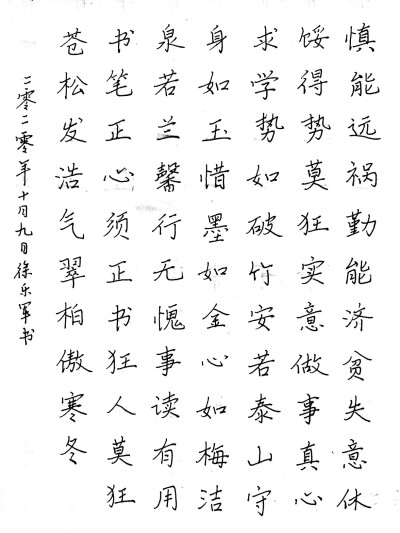 慎能远祸勤能济贫失意休
馁得势莫狂实意做事真心
求学势如破竹安若泰山守
身如玉惜墨如金心如梅洁
泉若兰馨行无愧事读有用
书笔正心须正书狂人莫狂
苍松发浩气翠柏傲寒冬
二零二零年十月九日徐乐军书